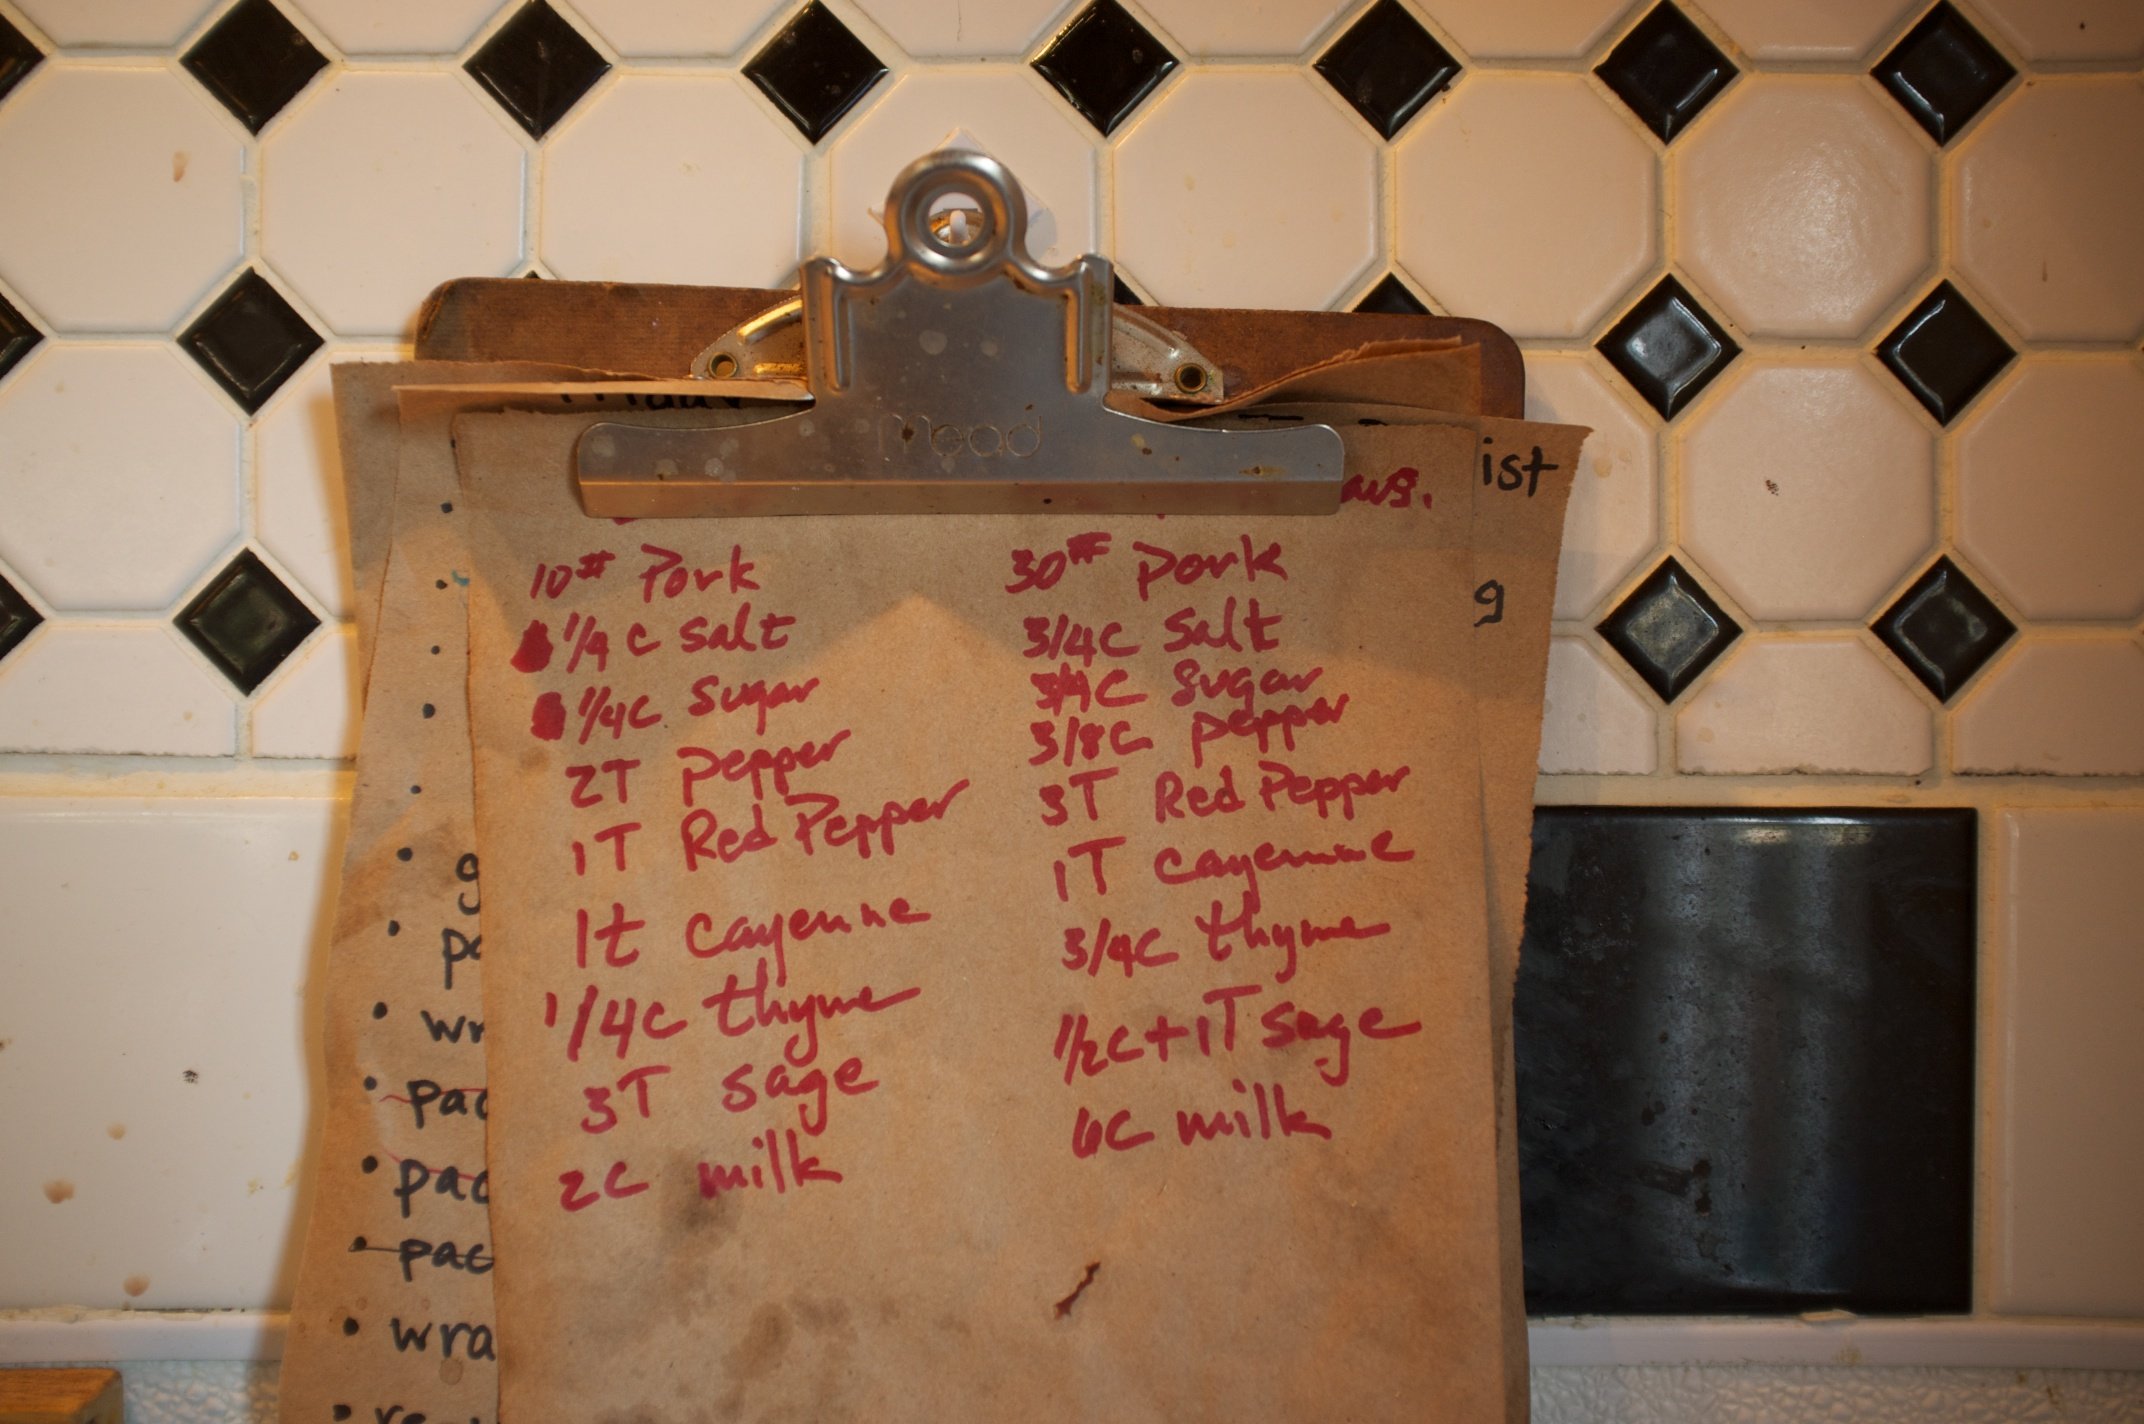 Mead
ist
g
10# Pork
1/4 C Salt
1/4C Sugar
2T Pepper
1T Red Pepper
1t cayenne
1/4C thyme
3T sage
2C milk
30# Pork
3/4C Salt
3/4C Sugar
3/8C pepper
3T Red Pepper
1T cayenne
3/4C thyme
1/2C+1T sage
6C milk
g
po
wr
pac
pac
pac
wra